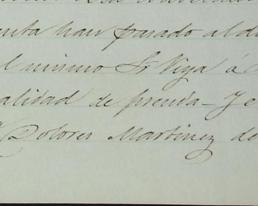 han pasado al
el mismo Sr Viya á
calidad de prenda - Y e
Dolores Martinez de